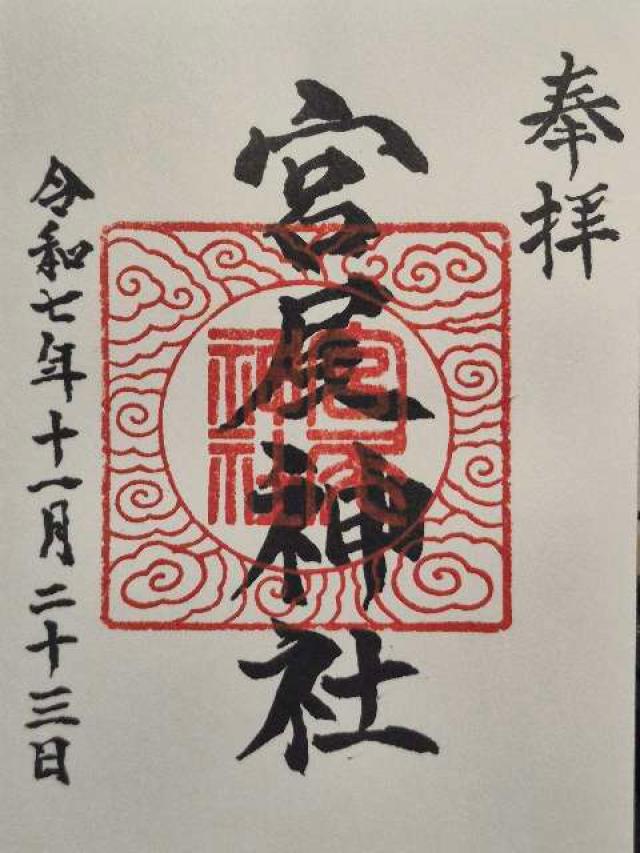 奉拝
宮尾神社
令和七年十一月二十三日